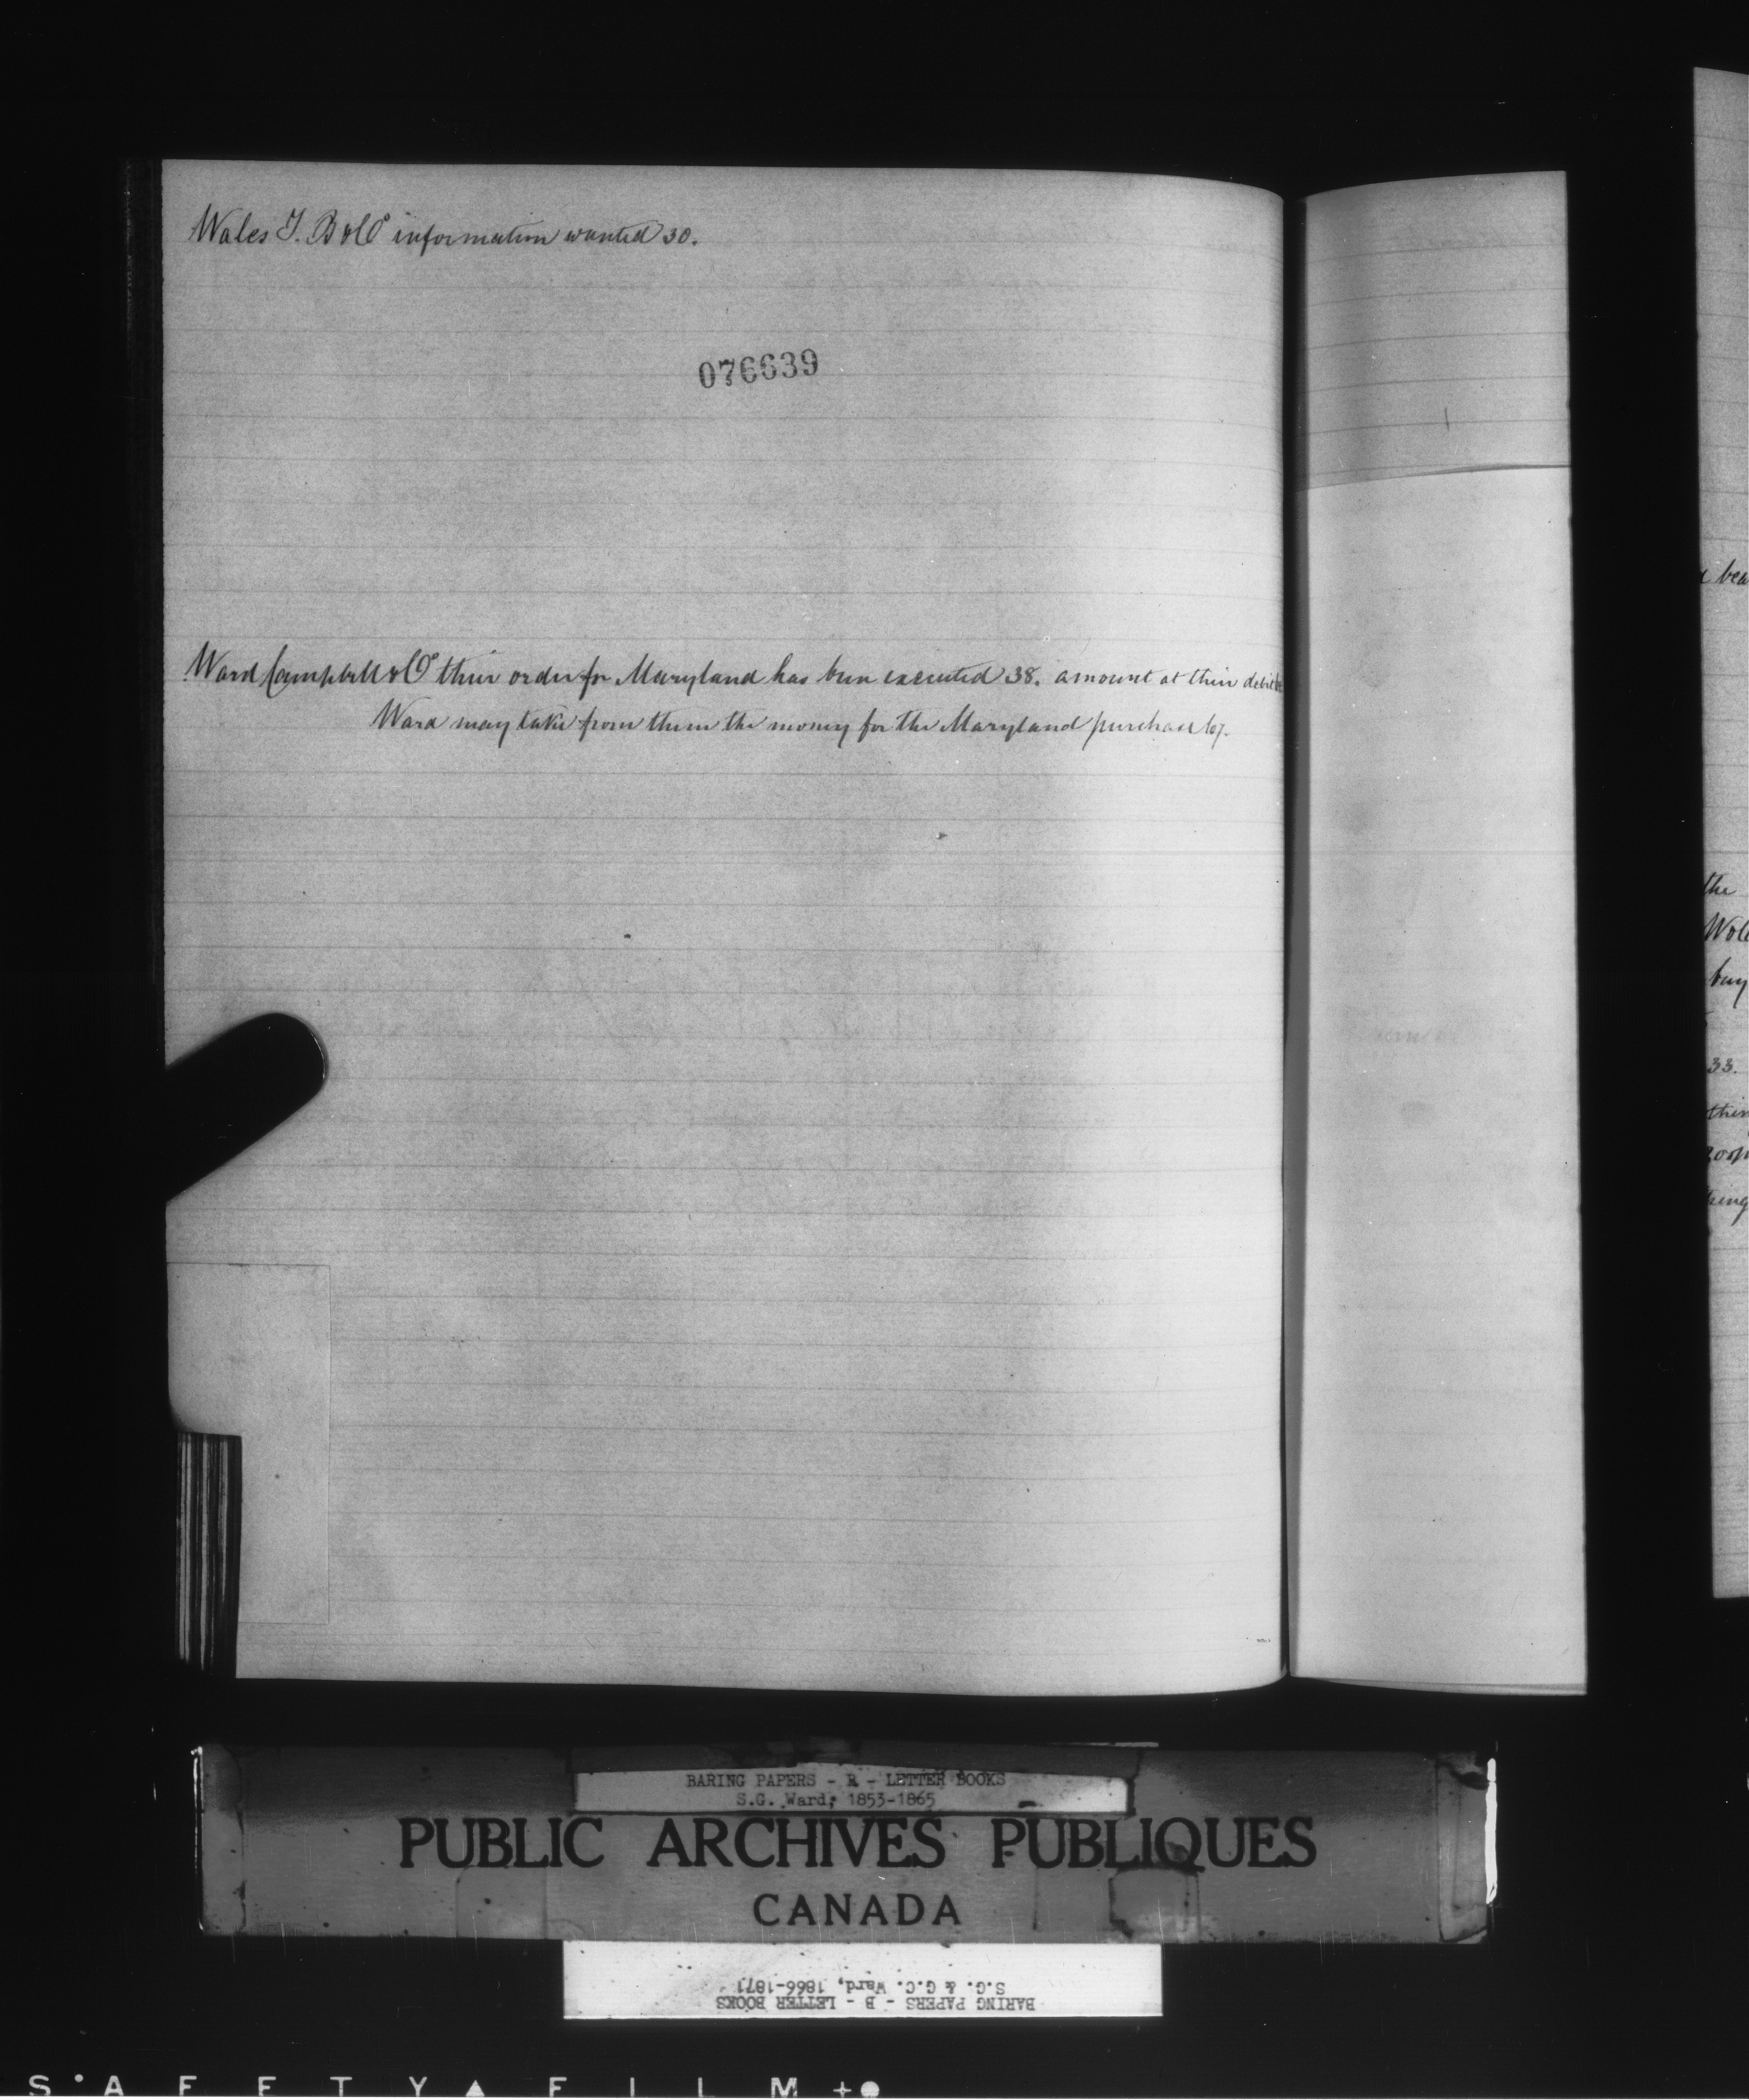 Wales T. B & Co information wanted 30.
076639
Ward Campbell & Co their order for Maryland has been executed 38. amount at their debit
Ward may take from them the money for the Maryland purchase 67.
the
buy
33.
BARING PAPERS - B - LETTER BOOKS
S.G. Ward, 1853-1865
PUBLIC ARCHIVES PUBLIQUES
CANADA
BARING PAPERS - B - LETTER BOOKS
S.G. & G.C. Ward, 1866-1871
SAFETY FILM